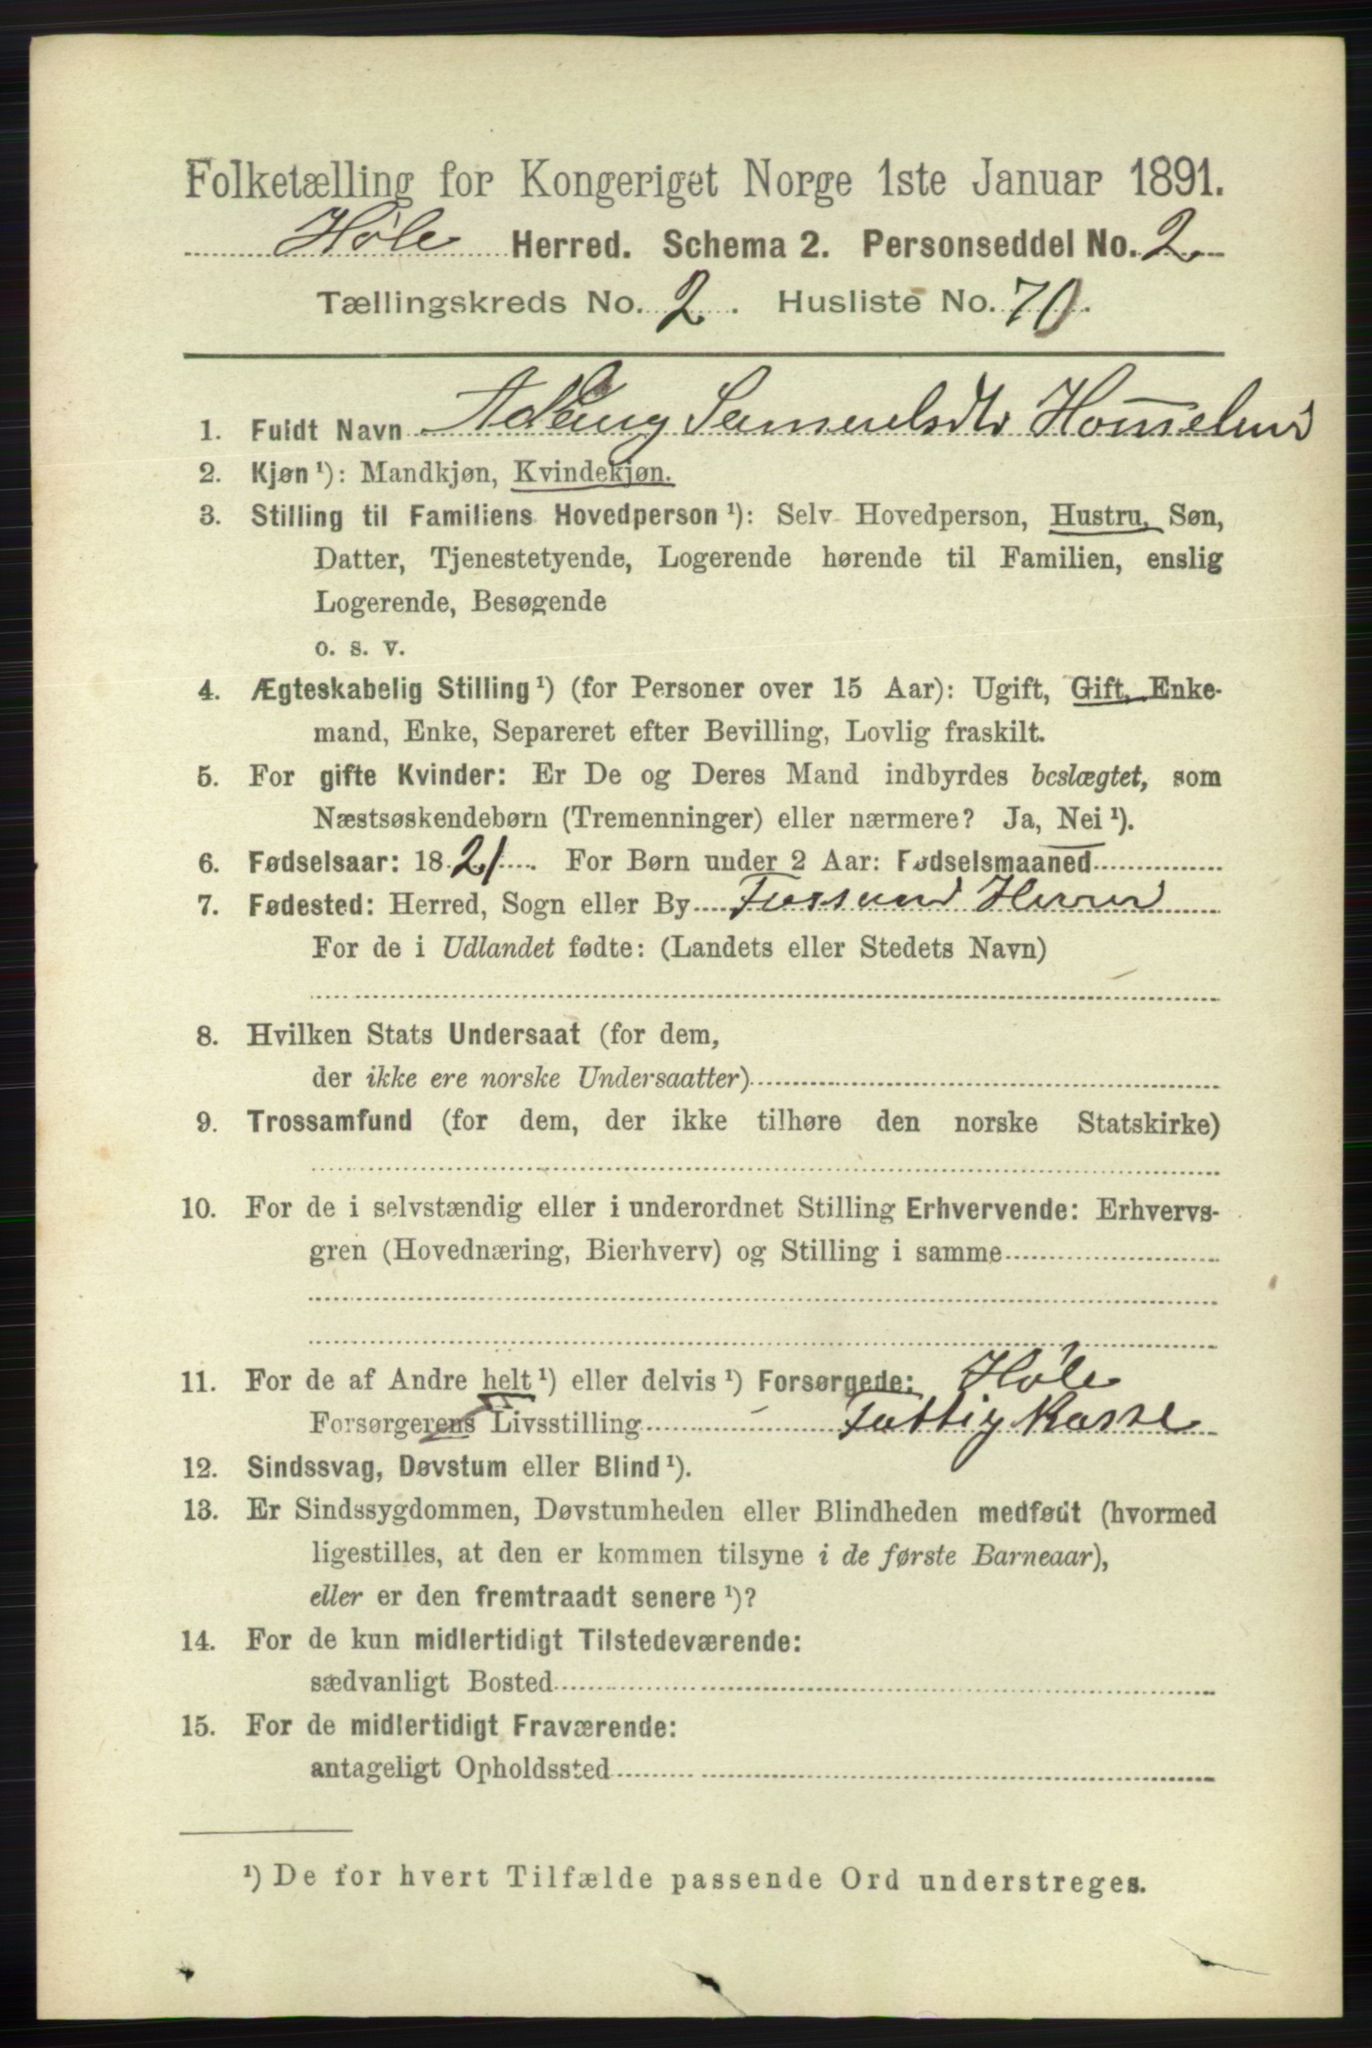 Folketælling for Kongeriget Norge 1ste Januar 1891.
Høle Herred. Schema 2. Personseddel No. 2
Tællingskreds No. 2. Husliste No. 70.
1. Fuldt Navn Samuelsdtr
2. Kjøn ¹): Mandkjøn, Kvindekjøn.
3. Stilling til Familiens Hovedperson ¹): Selv Hovedperson, Hustru, Søn,
Datter, Tjenestetyende, Logerende hørende til Familien, enslig
Logerende, Besøgende
o. s. v.
4. Ægteskabelig Stilling ¹) (for Personer over 15 Aar): Ugift, Gift, Enke-
mand, Enke, Separeret efter Bevilling, Lovlig fraskilt.
5. For gifte Kvinder: Er De og Deres Mand indbyrdes beslægtet, som
Næstsøskendebørn (Tremenninger) eller nærmere? Ja, Nei ¹).
6. Fødselsaar: 1821. For Børn under 2 Aar: Fødselsmaaned
7. Fødested: Herred, Sogn eller By Fossund Herred
For de i Udlandet fødte: (Landets eller Stedets Navn)
8. Hvilken Stats Undersaat (for dem,
der ikke ere norske Undersaatter)
9. Trossamfund (for dem, der ikke tilhøre den norske Statskirke)
10. For de i selvstændig eller i underordnet Stilling Erhvervende: Erhvervs-
gren (Hovednæring, Bierhverv) og Stilling i samme
11. For de af Andre helt ¹) eller delvis ¹) Forsørgede: Høle
Forsørgerens Livsstilling Fattig Kasse
12. Sindssvag, Døvstum eller Blind ¹).
13. Er Sindssygdommen, Døvstumheden eller Blindheden medfødt (hvormed
ligestilles, at den er kommen tilsyne i de første Barneaar),
eller er den fremtraadt senere ¹)?
14. For de kun midlertidigt Tilstedeværende:
sædvanligt Bosted
15. For de midlertidigt Fraværende:
antageligt Opholdssted
¹) De for hvert Tilfælde passende Ord understreges.